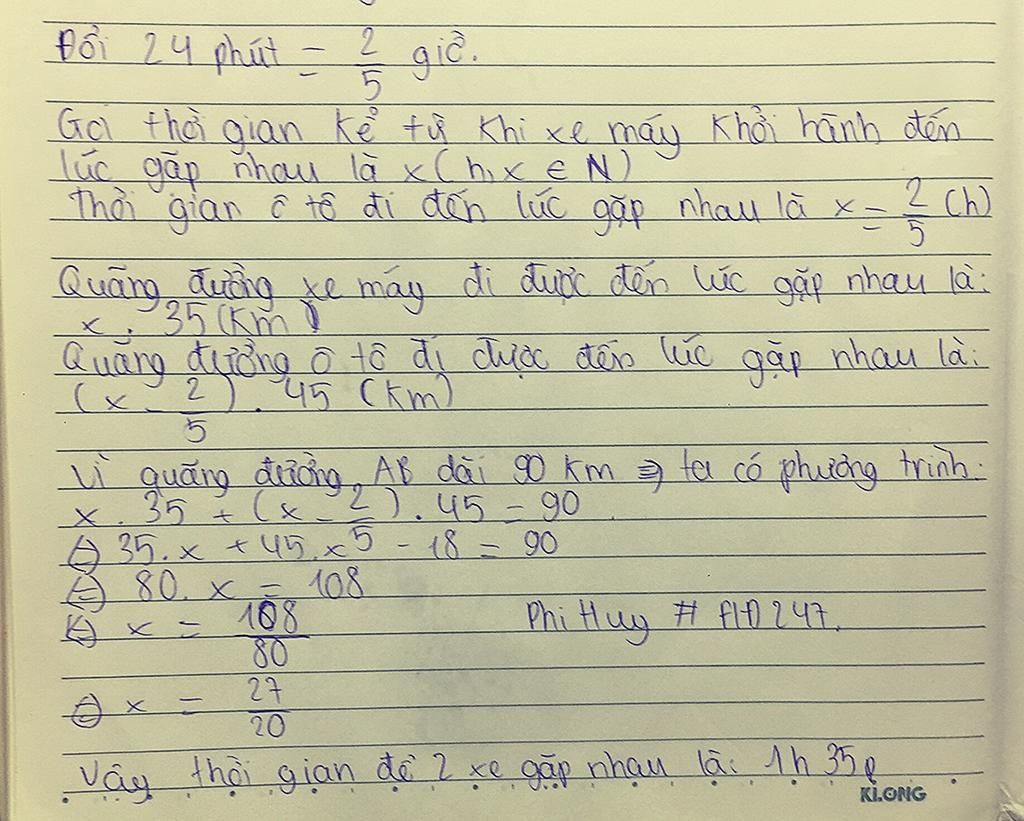 Đổi 24 phút = 2/5 giờ.
Gọi thời gian kể từ khi xe máy khởi hành đến
lúc gặp nhau là x (h, x ∈ N)
Thời gian ô tô đi đến lúc gặp nhau là x = 2/5 (h)
Quãng đường xe máy đi được đến lúc gặp nhau là:
x . 35 (Km)
Quãng đường ô tô đi được đến lúc gặp nhau là:
(x - 2/5) . 45 (Km)
Vì quãng đường AB dài 90 Km => ta có phương trình:
x . 35 + (x - 2/5) . 45 = 90
<=> 35.x + 45.x - 18 = 90
<=> 80.x = 108
<=> x = 108/80
Phi Huy # AHD 247.
<=> x = 27/20
Vậy thời gian để 2 xe gặp nhau là: 1h 35p
KLONG